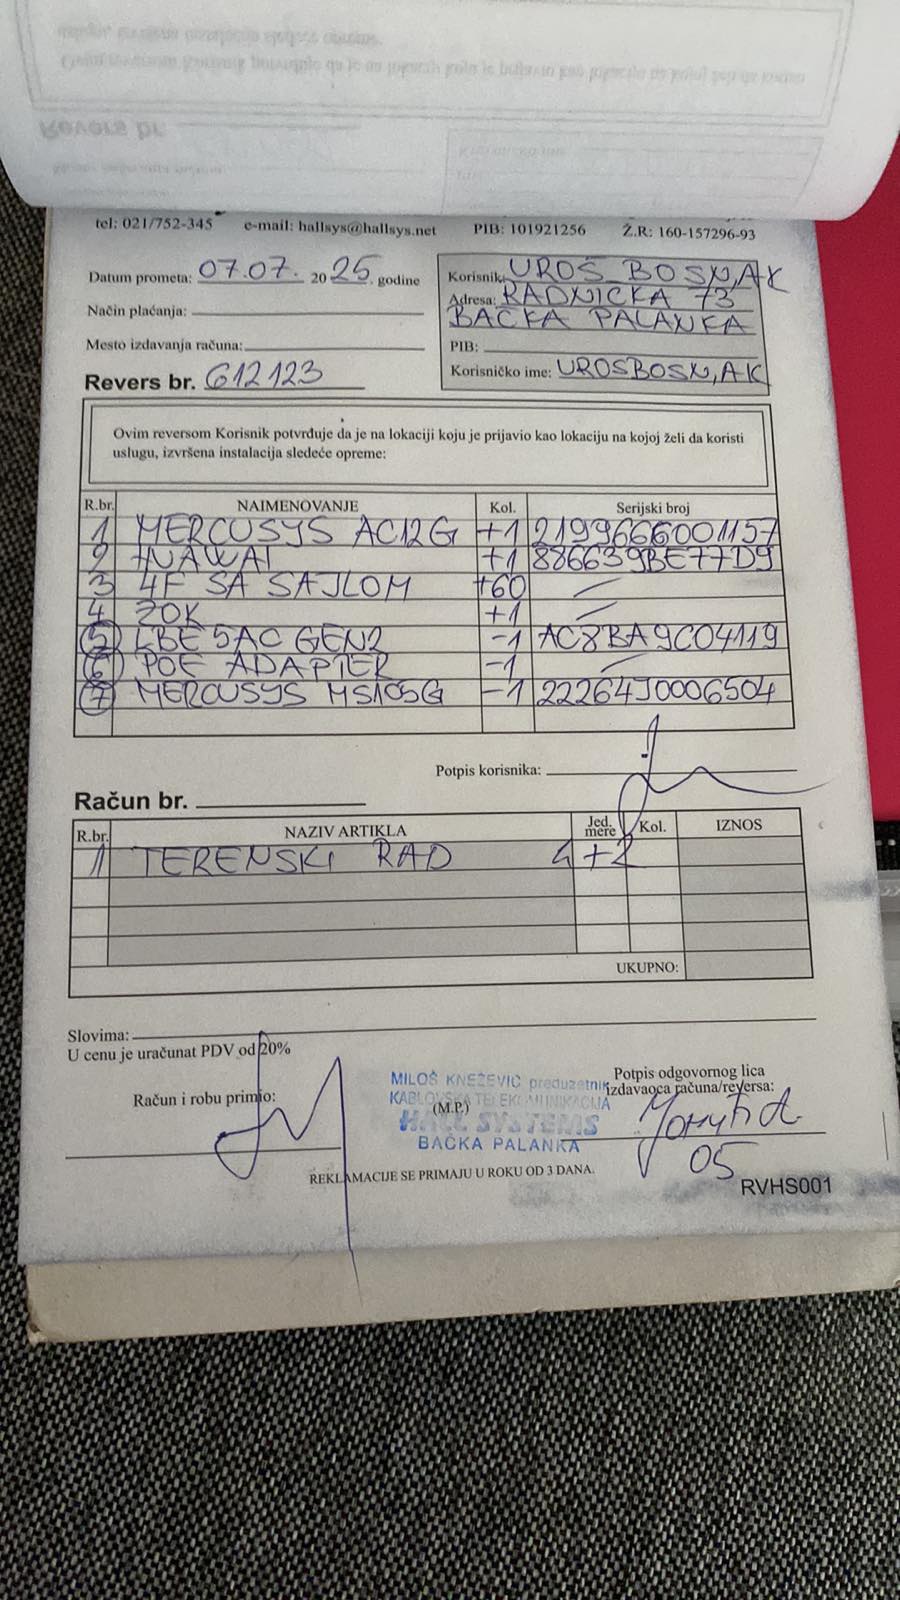 tel: 021/752-345 e-mail: hallsys@hallsys.net PIB: 101921256 Ž.R: 160-157296-93
Datum prometa: 07.07. 2025. godine
Način plaćanja:
Mesto izdavanja računa:
Revers br. 612123
Korisnik: UROŠ BOSNJAK
Adresa: RADNIČKA 73
BAČKA PALANKA
PIB:
Korisničko ime: UROSBOSNJAK
Ovim reversom Korisnik potvrđuje da je na lokaciji koju je prijavio kao lokaciju na kojoj želi da koristi
uslugu, izvršena instalacija sledeće opreme:
R.br. NAIMENOVANJE Kol. Serijski broj
1 MERCUSYS AC12G +1 2199666001157
2 HUAWAI +1 886639BE77D9
3 4F SA SAJLOM +60 /
4 ZOK +1 /
5 LBE 5AC GEN2 -1 AC8BA9C04119
6 POE ADAPTER -1 /
7 MERCUSYS MS105G -1 22264J0006504
Potpis korisnika:
Račun br.
R.br. NAZIV ARTIKLA Jed. mere Kol. IZNOS
1 TERENSKI RAD +2
UKUPNO:
Slovima:
U cenu je uračunat PDV od 20%
Račun i robu primio:
MILOŠ KNEŽEVIĆ preduzetnik
KABLOVSKA TELEKOMUNIKACIJA
(M.P.)
HALL SYSTEMS
BAČKA PALANKA
Potpis odgovornog lica
izdavaoca računa/reversa:
05
REKLAMACIJE SE PRIMAJU U ROKU OD 3 DANA.
RVHS001